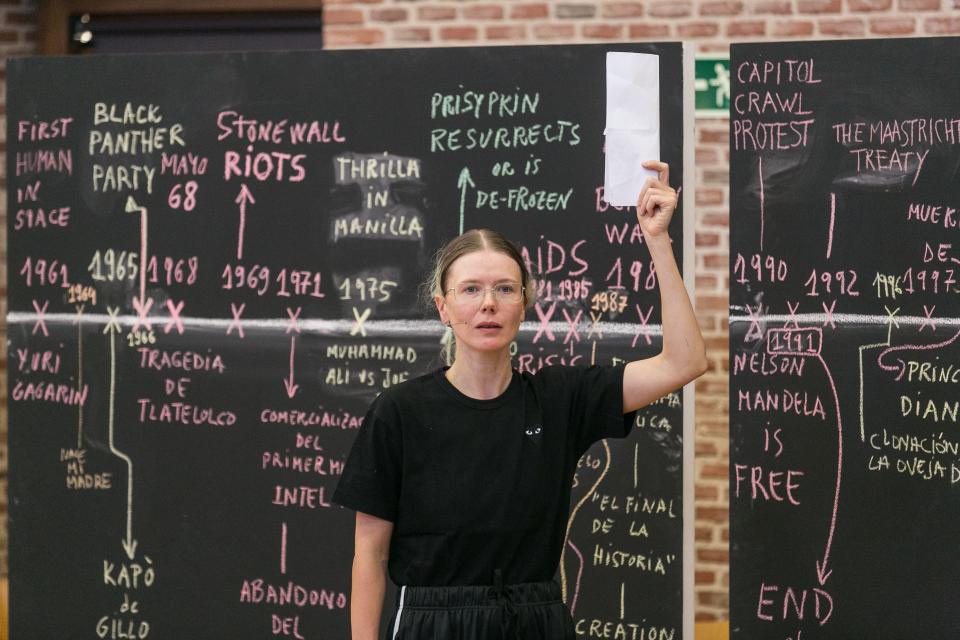 FIRST
HUMAN
IN
SPACE
1961
YURI
GAGARIN
1964
NACE
MI
MADRE
BLACK
PANTHER
PARTY
1965
1966
KAPÒ
de
GILLO
MAYO
68
1968
TRAGEDIA
DE
TLATELOLCO
STONEWALL
RIOTS
1969
1971
DEL
INTEL
ABANDONO
DEL
THRILLA
IN
MANILLA
1975
MUHAMMAD
ALI VS JOE
PRISYPKIN
RESURRECTS
OR IS
DE-FROZEN
AIDS
1985
1987
198
"EL FINAL
DE LA
HISTORIA"
CREATION
CAPITOL
CRAWL
PROTEST
1990
1991
NELSON
MANDELA
IS
FREE
THE MAASTRICHT
TREATY
1992
END
DE-
1996
1997
PRINC
DIAN
CLONACIÓN
LA OVEJA D